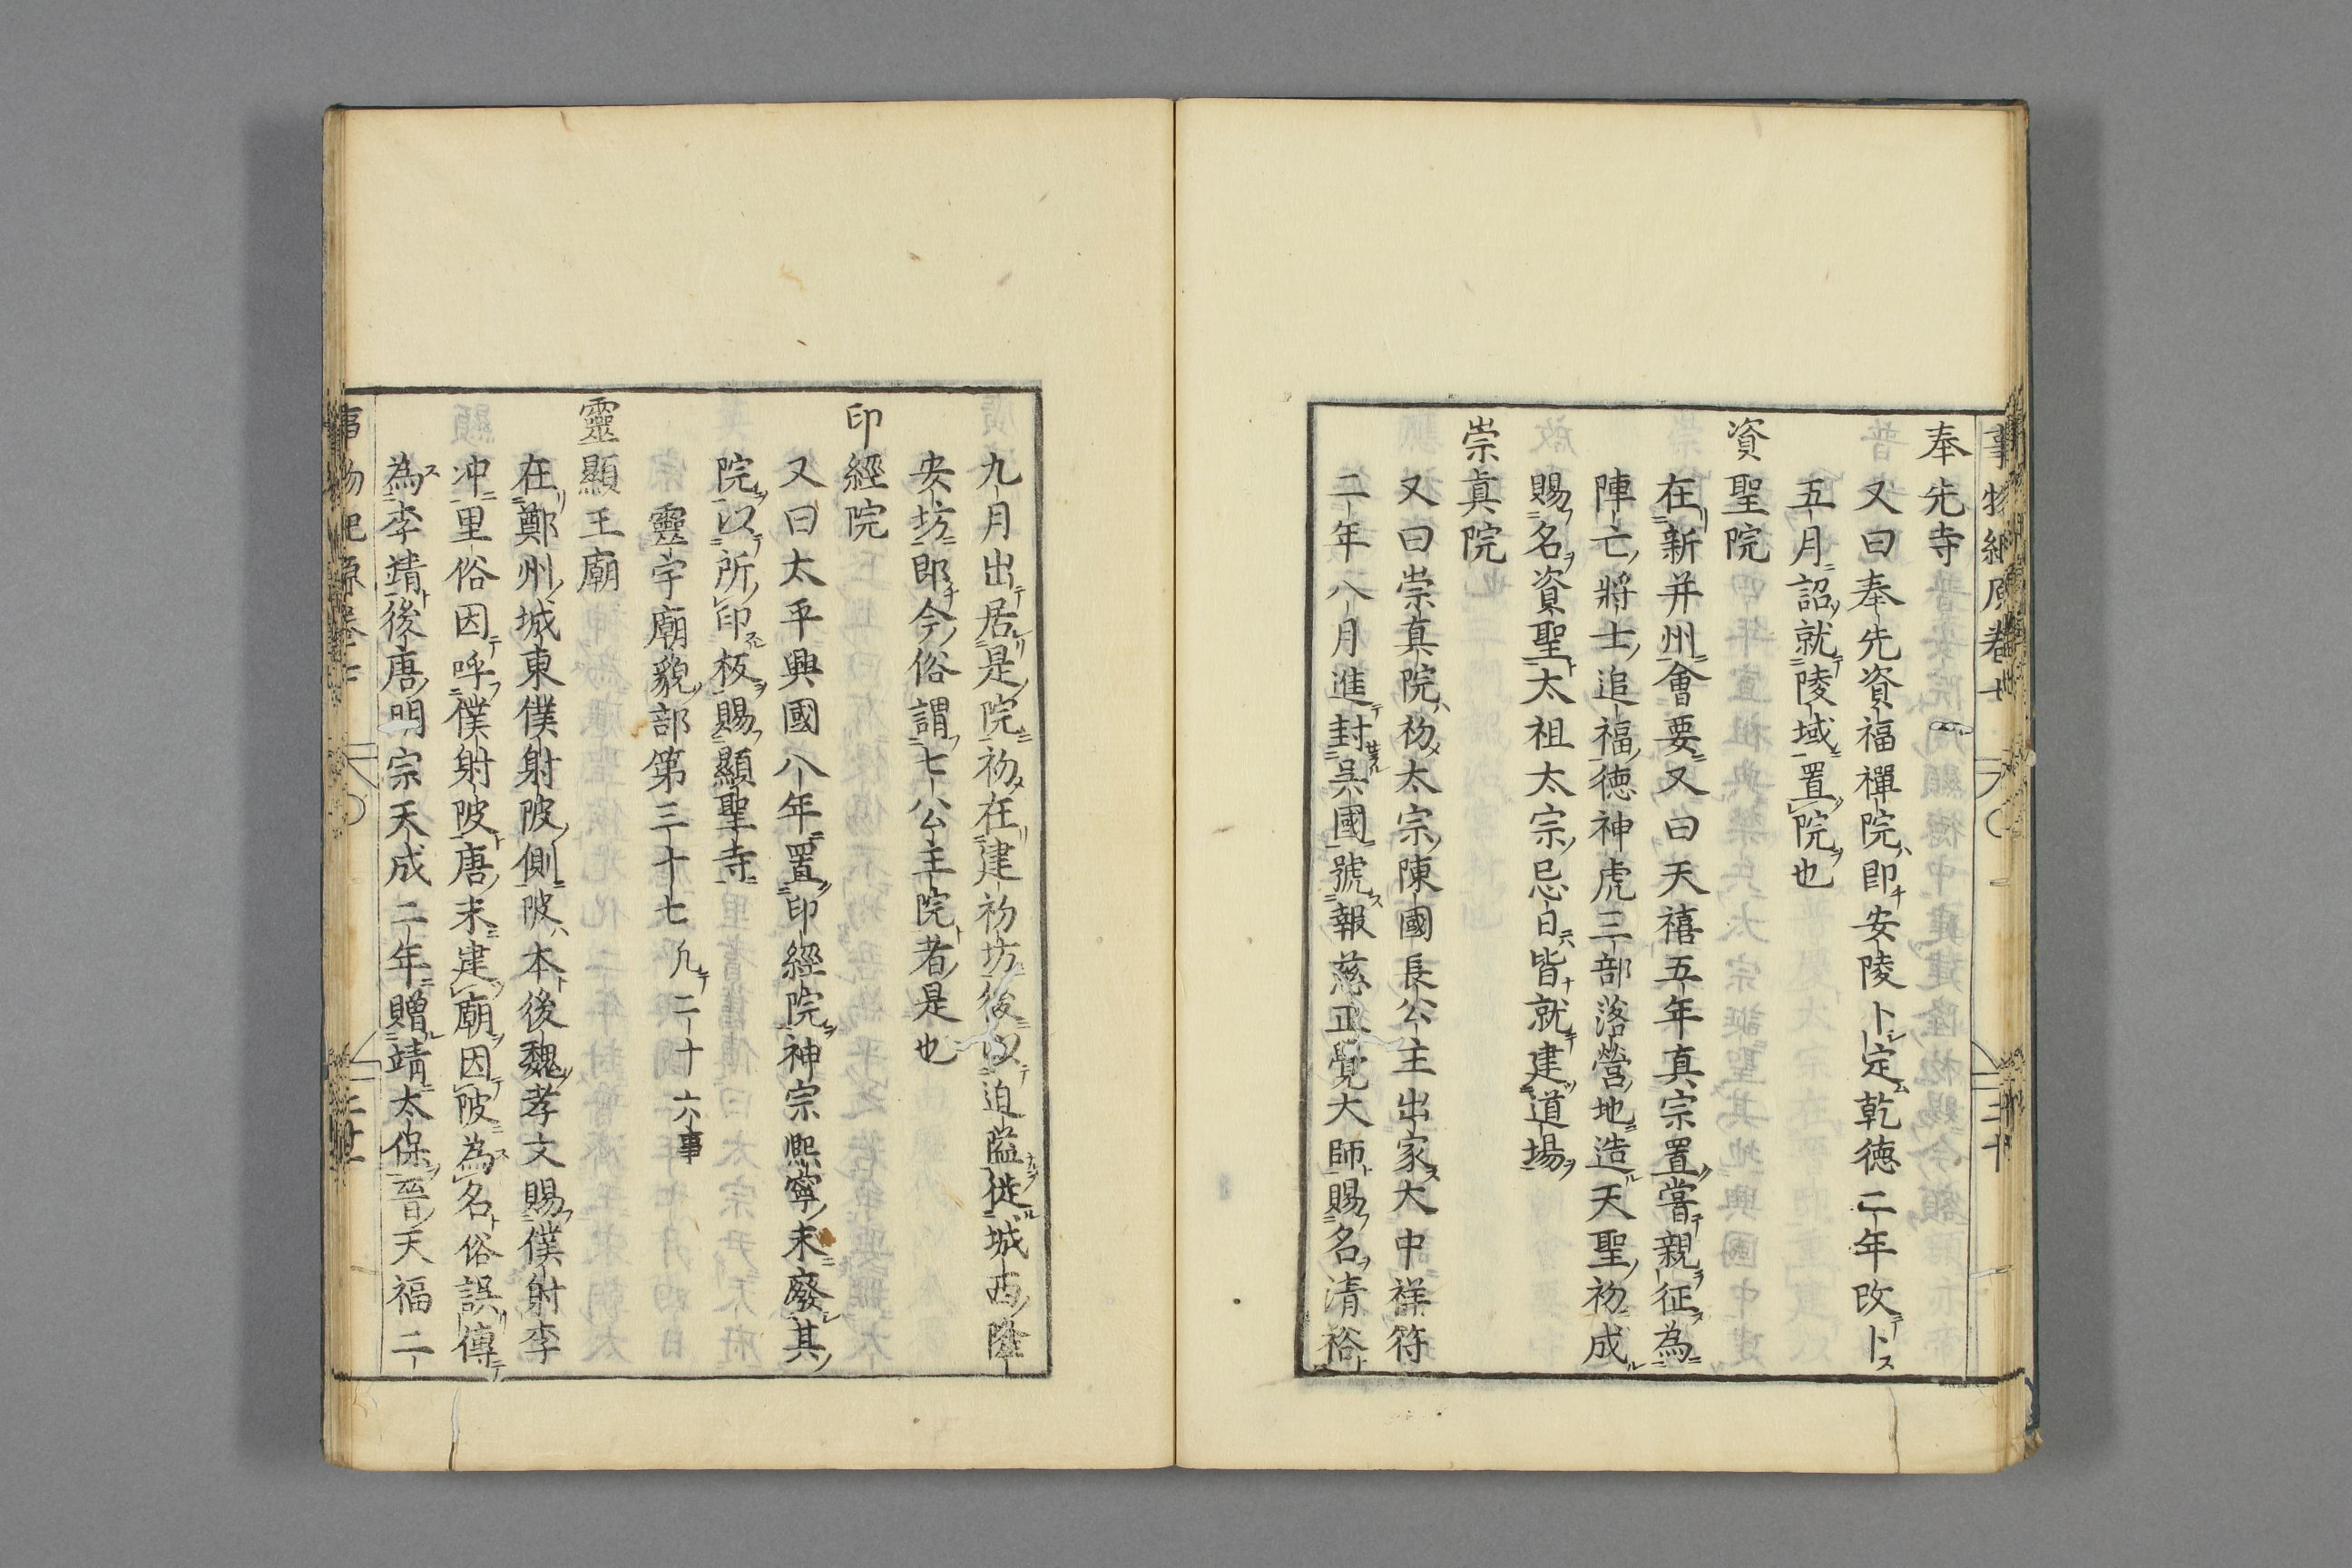 奉先寺
又曰奉先資福禪院即安陵卜定乾徳二年改卜
五月詔就陵域置院也
資聖院
在新并州會要又曰天禧五年真宗置嘗親征為
陣亡將士追福徳神虎三部落營地造天聖初成
賜名資聖太祖太宗忌日皆就建道場
崇眞院
又曰崇真院初太宗陳國長公主出家大中祥符
二年八月進封吳國號報慈正覺大師賜名清裕
九月出居是院初在建初坊後以迫隘徙城西隆
安坊即今俗謂七公主院者是也
印經院
又曰太平興國八年置印經院神宗熈寧末廢其
院以所印板賜顯聖寺
靈宇廟貌部第三十七 凡二十六事
靈顯王廟
在鄭州城東僕射陂側陂本後魏孝文賜僕射李
冲里俗因呼僕射陂唐末建廟因陂為名俗誤傳
為李靖後唐明宗天成二年贈靖太保晉天福二